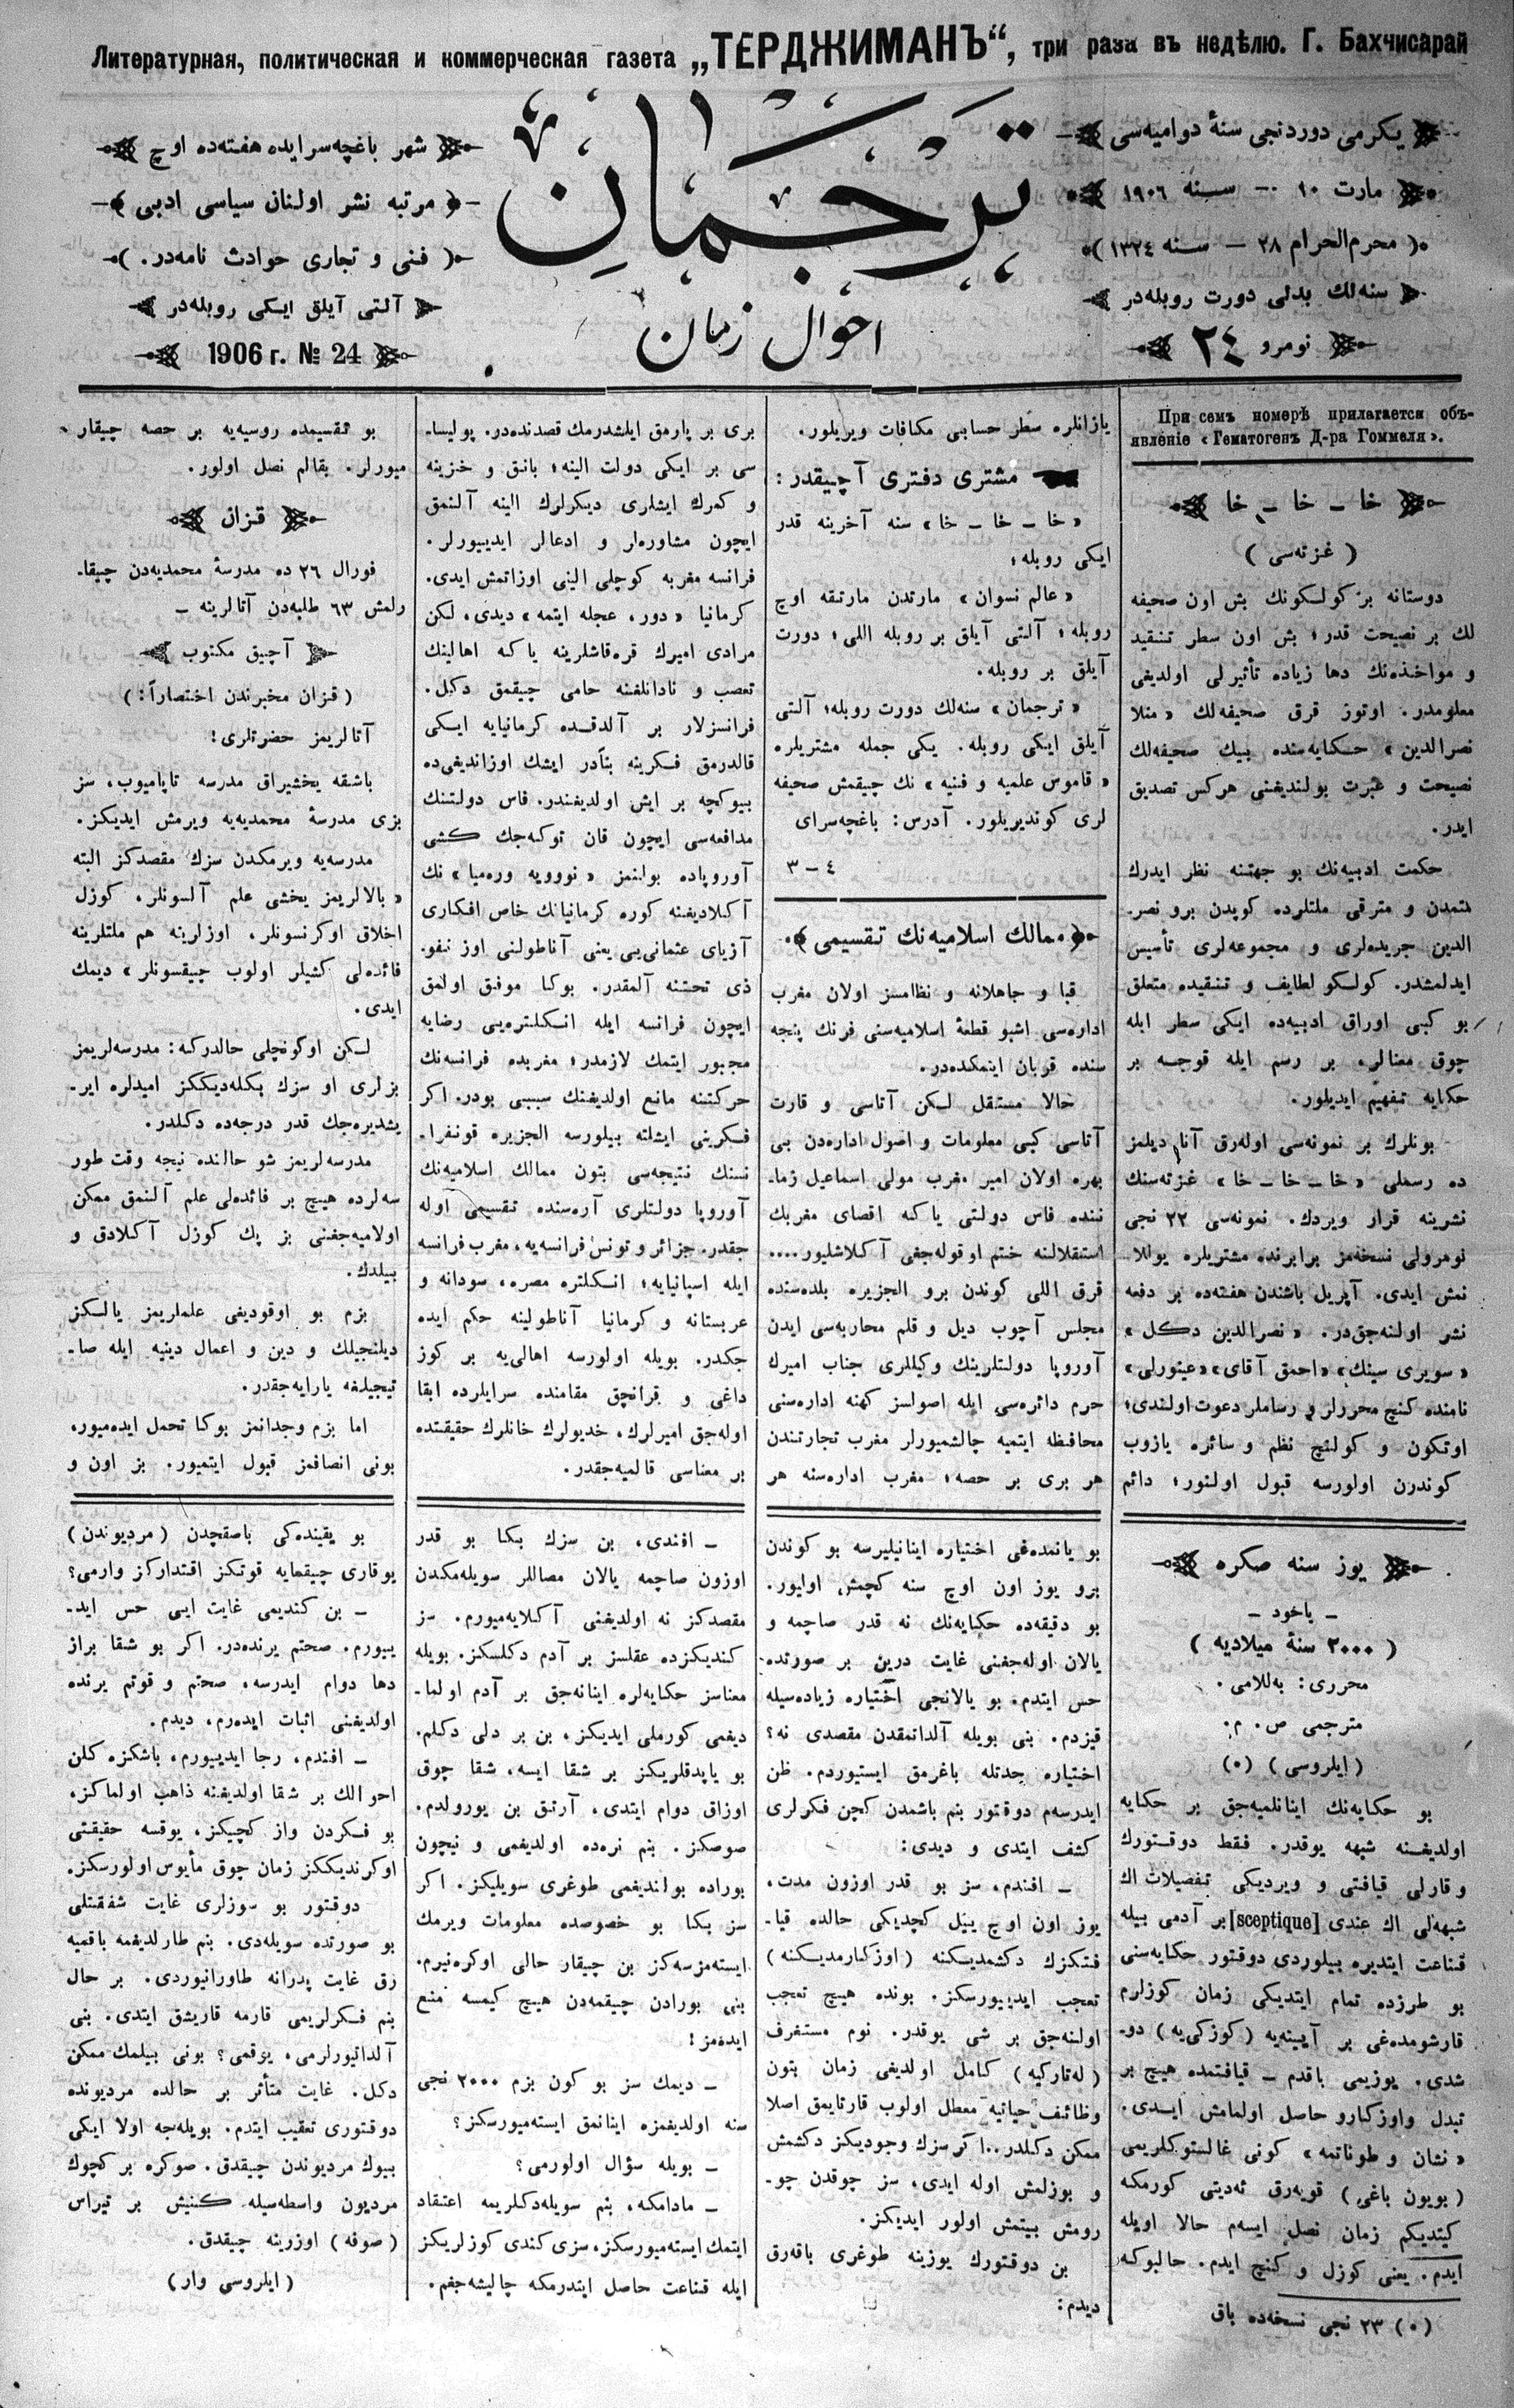 Литературная, политическая и коммерческая газета „ТЕРДЖИМАНЪ“, три раза въ недѣлю. Г. Бахчисарай
يكرمی دوردنجی سنهٔ دواميه‌سی
مارت ١٠ — سـنه ١٩٠٦
( محرم‌الحرام ٢٨ — سـنه ١٣٢٤ )
سنه‌لك بدلی دورت روبله‌در
نومرو ٢٤
ترجمان
احوال زمان
شهر باغچه‌سرايده هفته‌ده اوچ
مرتبه نشر اولنان سياسی ادبی
( فنی و تجاری حوادث نامه‌در. )
آلتی آيلق ايكی روبله‌در
1906 г. № 24
При семъ номерѣ прилагается объ-
явленіе «Гематогенъ Д-ра Гоммеля».
خا ـ خا ـ خا
( غزته‌سی )
دوستانه بر كولـكونك بش اون صحيفه
لك بر نصيحت قدر؛ بش اون سطر تـنـقيد
و مواخذه‌نك دها زياده تأثيرلی اولديغی
معلومدر. اوتوز قرق صحيفه‌لك «منلا
نصرالدين» حـكايه‌سنده بيك صحيفه‌لك
نصيحت و عبرت بولنديغنی هركس تصديق
ايدر.
حكمت ادبيه‌نك بو جهتنه نظر ايدرك
متمدن و مترقی ملتلرده كوپدن برو نصر-
الدين جريده‌لری و مجموعه‌لری تأسيس
ايدلمشدر. كولـكو لطايف و تـنـقيده متعلق
بو كبی اوراق ادبيه‌ده ايكی سطر ايله
چوق معنالر، بر رسم ايله قوجـه بر
حكايه تـفهيم ايديلور.
بونلرك بر نمونه‌سی اوله‌رق آنا ديلمز
ده رسملی «خا ـ خا ـ خا» غزته‌سنك
نشرينه قرار ويردك. نمونه‌سی ٢٢ نجی
نومرولی نسخه‌مز برابرنده مشتريلره يوللا-
نمش ايدی. آپريل باشندن هفته‌ده بر دفعه
نشر اولنه‌جق‌در. «نصرالدين دكل»
«سويری سينك» «احمق آقای» «عيتورلی»
نامنده كنچ محررلر و رساملر دعوت اولندی؛
اوتكون و كولنچ نظم و سائره يازوب
كوندرن اولورسه قبول اولنور؛ دائم
يازانلره سطر حسابی مكافات ويريلور.
مشتری دفتری آچيقدر:
«خا ـ خا ـ خا» سنه آخرينه قدر
ايكی روبله؛
«عالم نسوان» مارتدن مارتقه اوچ
روبله؛ آلتی آيلق بر روبله اللی؛ دورت
آيلق بر روبله.
«ترجمان» سنه‌لك دورت روبله؛ آلتی
آيلق ايكی روبله. يكی جمله مشتريلره
«قاموس علميه و فنيه» نك چيقمش صحيفه
لری كونديريلور. آدرس: باغچه‌سرای
٤ – ٣
ممالك اسلاميه‌نك تـقسيمی
قبا و جاهلانه و نظامسز اولان مغرب
اداره‌سی اشبو قطعهٔ اسلاميه‌سنی فرنك پنجه
سنده قربان ايتمكده‌در.
حالا مستقل لـكن آتاسی و قارت
آتاسی كبی معلومات و اصول اداره‌دن بی
بهره اولان امير مغرب مولی اسماعيل زما-
ننده فاس دولتی ياكه اقصای مغربك
استقلالنه ختم او قوله‌جغی آكلاشليور....
قرق اللی كوندن برو الجزيره بلده‌سنده
مجلس آچوب ديل و قلم محاربه‌سی ايدن
آوروپا دولتلرينك وكيللری جناب اميرك
حرم دائره‌سی ايله اصولسز كهنه اداره‌سنی
محافظه ايتميه چالشميورلر مغرب تجارتندن
هر بری بر حصه؛ مغرب اداره‌سنه هر
بری بر پارمق ايلشدرمك قصدنده‌در. پوليسا-
سی بر ايكی دولت الينه؛ بانق و خزينه
و كمرك ايشلری ديكرلرك الينه آلنمق
ايچون مشاوره‌لر و ادعالر ايديبورلر.
فرانسه مغربه كوچلی الينی اوزاتمش ايدی.
كرمانيا «دور، عجله ايتمه» ديدی، لكن
مرادی اميرك قره‌قاشلرينه ياكه اهالينك
تعصب و نادانلغنه حامی چيقمق دكل.
فرانسزلار بر آلدقـده كرمانيايه ايـكی
قالدرمق فـكرينه بناًدر ايشك اوزانديغی‌ده
بيوكچه بر ايش اولديغندر. فاس دولتنك
مدافعه‌سی ايچون قان توكه‌جك كشی
آوروپاده بولنمز «نوويه وره‌ميا» نك
آكلاديغنه كوره كرمانيانك خاص افكاری
آزيای عثمانی‌يی يعنی آناطولنی اوز نفو-
ذی تحتنه آلمقدر. بوكا موفق اولمق
ايچون فرانسه ايله انـكلتره‌يی رضايه
مجبور ايتمك لازمدر؛ مغربده فرانسه‌نك
حركتنه مانع اولديغنك سببی بودر. اكر
فـكرينی ايشلته بيلورسه الجزيره قونفرا-
نسنك نتيجه‌سی بتون ممالك اسلاميه‌نك
آوروپا دولتلری آره‌سنده تقسيمی اوله
جقدر. جزائر و تونس فرانسه‌يه، مغرب فرانسه
ايله اسپانيايه؛ انـكلتره مصره، سودانه و
عربستانه و كرمانيا آناطولينه حكم ايده
جكدر. بويله اولورسه اهالی‌يه بر كوز
داغی و قرانچق مقامنده سرايلرده ابقا
اوله‌جق اميرلرك، خديولرك خانلرك حقيقتده
بر معناسی قالميه‌جقدر.
بو تـقسيمده روسيه‌يه بر حصه چيقار
ميورلر. بقالم نصل اولور.
قـزان
فورال ٢٦ ده مدرسهٔ محمديه‌دن چيقا-
رلمش ٦٣ طلبه‌دن آتالرينه ـ
آچيق مكتوب
( قزان مخبرندن اختصاراً: )
آتالريمز حضرتلری!
باشقه يخشيراق مدرسه تاپاميوب، سز
بزی مدرسهٔ محمديه‌يه ويرمش ايديكز.
مدرسه‌يه ويرمكدن سزك مقصدكز البته
«بالالريمز يخشی علم آلسونلر، كوزل
اخلاق اوكرنسونلر، اوزلرينه هم ملتلرينه
فائده‌لی كشيلر اولوب چيقسونلر» ديمك
ايدی.
لـكن اوكونچلی حالدركه: مدرسه‌لريمز
بزلری او سزك بكله‌ديككز اميدلره اير-
يشديره‌جك قدر درجه‌ده دكلدر.
مدرسه‌لريمز شو حالنده نيجه وقت طور
سه‌لرده هيچ بر فائده‌لی علم آلنمق ممكن
اولاميه‌جغنی بز پك كوزل آكلادق و
بيلدك.
بزم بو اوقوديغی علملريمز يالـكز
ديلنجيلك و دين و اعمال دينيه ايله صا-
تيجيلغه يارايه‌جقدر.
اما بزم وجدانمز بوكا تحمل ايده‌ميور،
بونی انصافمز قبول ايتميور. بز اون و
يوز سنه صكره
ـ ياخود ـ
( ٢٠٠٠ سنهٔ ميلاديه )
محرری: به‌للامی.
مترجمی ص. م.
(ايلروسی) (٠)
بو حكايه‌نك اينانلميه‌جق بر حكايه
اولديغـنه شبهه يوقدر. فقط دوقـتورك
وقارلی قيافتی و ويرديكی تـفصيلات اك
شبهه‌لی اك عندی [sceptique] بر آدمی بيله
قناعت ايتديره بيلوردی دوقتور حكايه‌سنی
بو طرزده تمام ايتديكی زمان كوزلرم
قارشومده‌غی بر آيينه‌يه (كوزكی‌يه) دو-
شدی. يوزيمی باقدم ـ قيافتمده هيچ بر
تبدل و اوزكارو حاصل اولمامش ايـدی.
«نشان و طوناتمه» كونی غالستوكلريمی
(بويون باغی) قويه‌رق ئه‌ديتی كورمكه
كيتديكم زمان نصل ايسه‌م حالا اويله
ايدم. يعنی كوزل و كنچ ايدم. حالبوكه
(٠) ٢٣ نجی نسخه‌ده باق
بو يانمده‌غی اختياره اينانيليرسه بو كوندن
برو يوز اون اوچ سنه كچمش اوليور.
بو دقيقه‌ده حكايه‌نك نه قدر صاچمه و
يالان اوله‌جغنی غايت درين بر صورتده
حس ايتدم. بو يالانجی اختياره زياده‌سيله
قيزدم. بنی بويله آلداتمقدن مقصدی نه؟
اختياره حدتله باغرمق ايستيوردم. ظن
ايدرسه‌م دوقتور بنم باشمدن كچن فكرلری
كشف ايتدی و ديدی:
ـ افندم، سز بو قدر اوزون مدت،
يوز اون اوچ ييل كچديكی حالده قيا-
فتكزك دكشمديـكنه (اوزكارمديكنه)
تعجب ايديبورسكز. بونده هيچ تعجب
اولنه‌جق بر شی يوقدر. نوم مستغرف
(له‌تارگيه) كامل اولديغی زمان بتون
وظائـف حياتيه معطل اولوب قارتايمق اصلا
ممكن دكلدر.. اكر سزك وجوديكز دكشمش
و بوزلمش اوله ايدی، سز چوقدن چو-
رومش بيتمش اولور ايديكز.
بن دوقتورك يوزينه طوغری باقه‌رق
ديدم:
ـ افندی، بن سزك بكا بو قدر
اوزون صاچمه يالان مصاللر سويله‌مكدن
مقصدكز نه اولديغنی آكلايه‌ميورم. سز
كنديكزده عقلسز بر آدم دكلسكز. بويله
معناسز حكايه‌لره اينانه‌جق بر آدم اولما-
ديغمی كورملی ايديكز، بن بر دلی دكلم.
بو ياپدقلريكز بر شقا ايسه، شقا چوق
اوزاق دوام ايتدی، آرتق بن يورولدم.
صوصكز. بنم نره‌ده اولديغمی و نيچون
بوراده بولنديغمی طوغری سويليكز. اكر
سز بكا بو خصوصده معلومات ويرمك
ايسته‌مزسه‌كز بن چيقار حالی اوكره‌نيرم.
بنی بورادن چيقمه‌دن هيچ كيمسه منع
ايده‌مز!
ـ ديمك سز بو كون بزم ٢٠٠٠ نجی
سنه اولديغمزه اينانمق ايسته‌ميورسكز؟
ـ بويله سؤال اولورمی؟
ـ مادامكه، بنم سويله‌دكلريمه اعتقاد
ايتمك ايسته‌ميورسكز، سزی كندی كوزلريكز
ايله قناعت حاصل ايتدرمكه چاليشه‌جغم.
بو يقينده‌كی باصقچدن (مرديوندن)
يوقاری چيقمايه قوتكز اقتداركز وارمی؟
ـ بن كنديمی غايت ايی حس ايد-
يبورم. صحتم يرنده‌در. اكر بو شقا براز
دها دوام ايدرسه، صحتم و قوتم يرنده
اولديغنی اثبات ايده‌رم، ديدم.
ـ افندم، رجا ايديبورم، باشكزه كلن
احوالك بر شقا اولديغنه ذاهب اولماكز،
بو فـكردن واز كچيكز، يوقسه حقيقتی
اوكرنديككز زمان چوق مأيوس اولورسكز.
دوقتور بو سوزلری غايت شفقتلی
بو صورتده سويله‌دی. بنم طارلديغمه باقميه
رق غايت پدرانه طاورانيوردی. بر حال
بنم فـكرلريمی قارمه قاريشق ايتدی. بنی
آلداتيورلرمی، يوقمی؟ بونی بيلمك ممكن
دكل. غايت متأثر بر حالده مرديونده
دوقتوری تعقيب ايتدم. بويله‌جه اولا ايكی
بيوك مرديوندن چيقدق. صوكره بر كچوك
مرديون واسطه‌سيله كـنيش بر تيراس
(صوفه) اوزرينه چيقدق.
(ايلروسی وار)